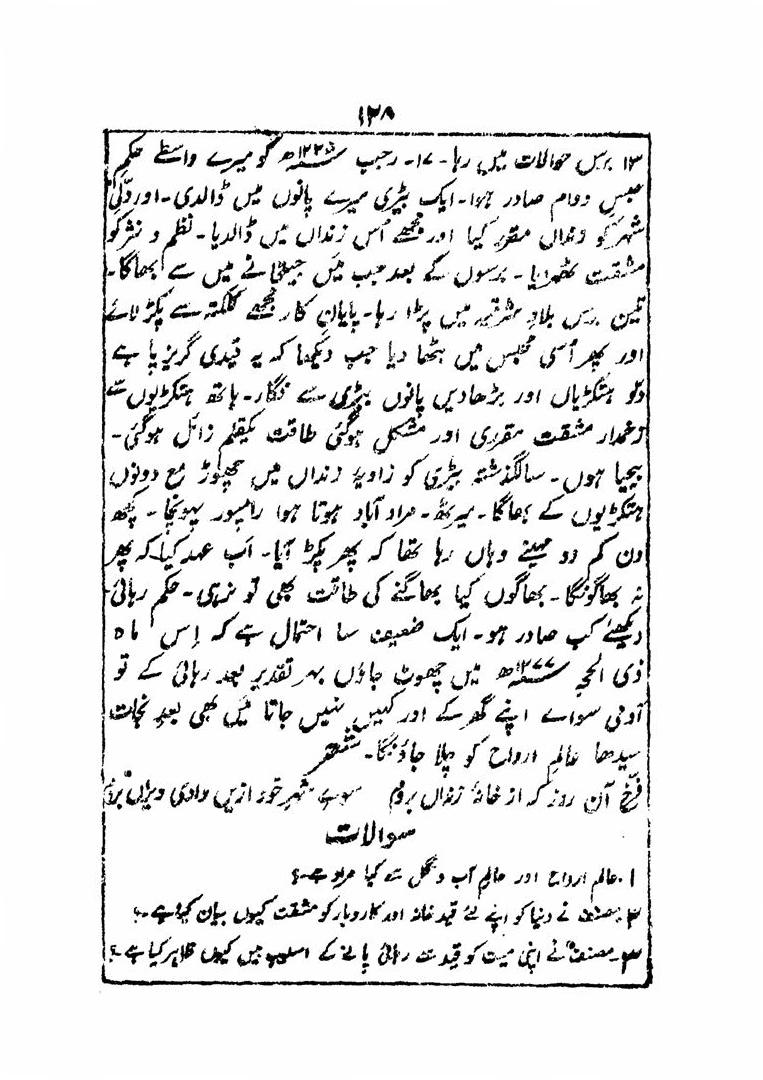 ۱۲۸
۱۳ برس حوالات میں رہا۔ ۱۷۔ رجب ۱۲۲۵ھ کو میرے واسطے حکم
حبس دوام صادر ہوا۔ ایک بیڑی میرے پانوں میں ڈالدی۔ اور دلّی
شہر کو زندان مقرر کیا اور مجھے اس زنداں میں ڈالدیا۔ نظم و نثر کو
مشقت ٹھہرایا۔ برسوں کے بعد میں جیلخانے میں سے بھاگا۔
تین برس بلادِ شرقیہ میں پڑا رہا۔ پایانِ کار مجھے کلکتہ سے پکڑ لائے
اور پھر اُسی محبس میں بٹھا دیا جب دیکھا کہ یہ قیدی گریز پا ہے
دلو ہتکڑیاں اور بڑھادیں پانوں بیڑی سے فگار۔ ہاتھ ہتکڑیوں سے
زخمدار مشقت مقرری اور مشکل ہوگئی طاقت یکقلم زائل ہوگئی۔
بیحیا ہوں۔ سالگذشتہ بیڑی کو زاویۂ زنداں میں چھوڑ مع دونوں
ہتکڑیوں کے بھاگا۔ میرٹھ۔ مراد آباد ہوتا ہوا رامپور پہونچا۔ کچھ
دن کم دو مہینے وہاں رہا تھا کہ پھر پکڑ آیا۔ اب عہد کیا کہ پھر
نہ بھاگونگا۔ بھاگوں کیا بھاگنے کی طاقت بھی تو نرہی۔ حکم رہائی
دیکھئے کب صادر ہو۔ ایک ضعیف سا احتمال ہے کہ اِس ماہ
ذی الحجہ ۱۲۷۷ھ میں چھوٹ جاؤں بہر تقدیر بعد رہائی کے تو
آدمی سواے اپنے گھر کے اور کہیں نہیں جاتا میں بھی بعد نجات
سیدھا عالمِ ارواح کو چلا جاؤنگا۔ شعر
فرّخ آن روز کہ از خانۂ زنداں بروم سوے شہر خود ازیں وادی ویراں بروم
سوالات
۱۔ عالم ارواح اور عالم آب و گل سے کیا مراد ہے؟
۲۔ مصنف نے دنیا کو اپنے لئے قید خانہ اور کاروبار کو مشقت کیوں بیان کیا ہے۔؟
۳۔ مصنف نے اپنی میت کو قید سے رہائی پانے کے اسلوب میں کیوں ظاہر کیا ہے۔؟